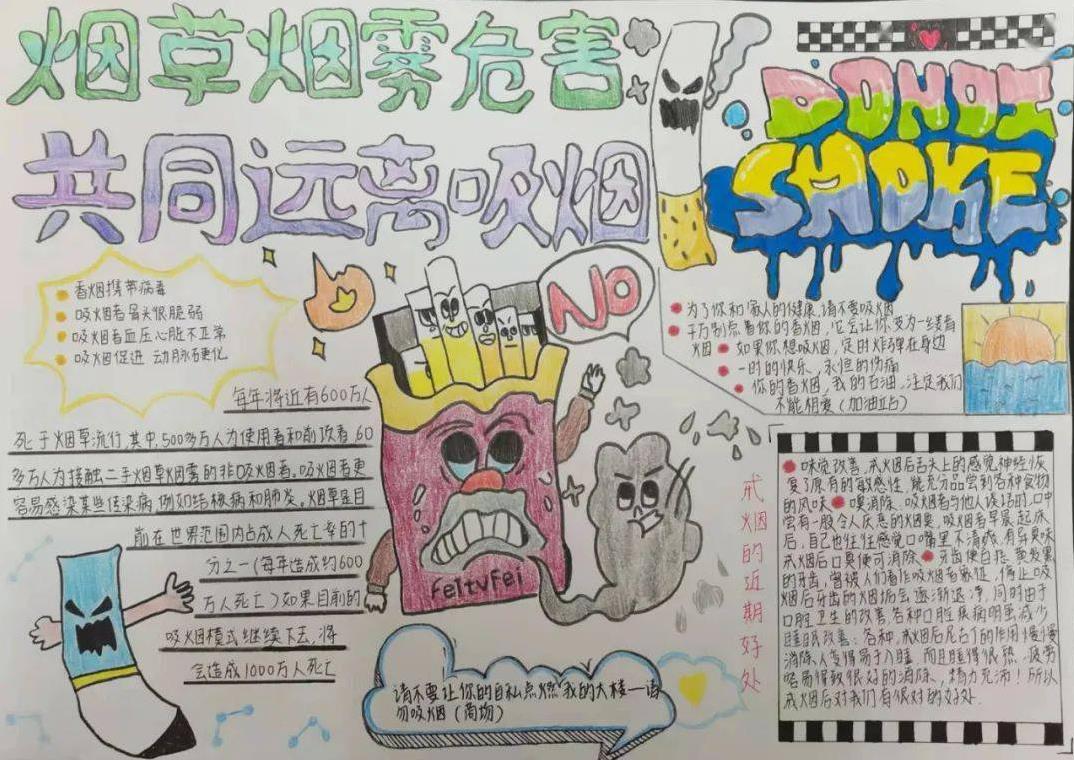 烟草烟雾危害
共同远离吸烟
DONOT
SMOKE
香烟携带病毒
吸烟者骨头很脆弱
吸烟者血压心脏不正常
吸烟促进 动脉硬化
NO
为了你和家人的健康,请不要吸烟
千万别点着你的香烟,它会让你变为一缕青
烟 如果你想吸烟,定时炸弹在身边
一时的快乐,永恒的伤痛
你的香烟,我的石油,注定我们
不能相爱(加油站)
每年将近有600万人
死于烟草流行,其中,500多万人为使用者和前吸者 60
多万人为接触二手烟草烟雾的非吸烟者。吸烟者更
容易感染某些传染病,例如结核病和肺炎。烟草是目
前在世界范围内占成人死亡率的十
分之一(每年造成约600
万人死亡)如果目前的
吸烟模式继续下去,将
会造成1000万人死亡
Feitv Fei
请不要让你的自私点燃我的大楼—请
勿吸烟(商场)
戒烟的近期好处
味觉改善,戒烟后舌头上的感觉神经恢
复了原有的敏感性,能充分品尝到各种食物
的风味 嗅消除,吸烟者与他人谈话时,口中
会有一股令人厌恶的烟臭,吸烟者早晨起床
后,自己也往往感觉口嘴里不清爽,有异臭味
戒烟后口臭便可消除 牙齿便白
的牙齿,曾被人们看作吸烟者象征,停止吸
烟后牙齿的烟垢会逐渐退净,同时由于
口腔卫生的改善,各种口腔疾病明显减少
睡眠改善:各种,戒烟后尼古丁的作用慢慢
消除,人变得易于入睡,而且睡得很熟,疲劳
容易得到很好的消除,精力充沛!所以
戒烟后对我们有很对的好处.